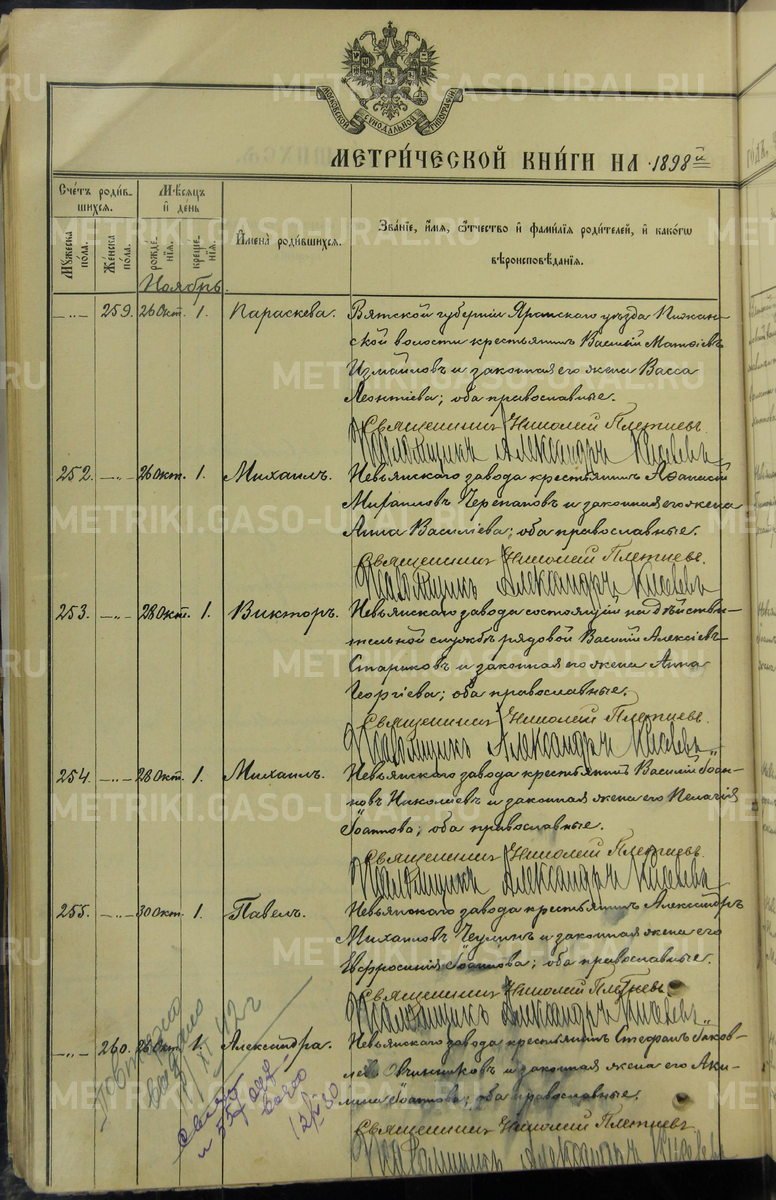 METRIKI.GASO-URAL.RU
МОСКОВСКОЙ СѴНОДАЛЬНОЙ ТИПОГРАФІИ
МЕТРИ́ЧЕСКОЙ КНИ́ГИ НА 1898й
Сче́тъ роди́вшихся.
Мѣ́сяцъ и҆ день
И҆мена̀ роди́вшихся.
Зва́нїе, и҆́мѧ, ѻ҆́тчество и҆ фами́лїѧ роди́телей, и҆ како́гѡ вѣроисповѣ́данїѧ.
Мꙋ́жеска по́ла.
Же́нска по́ла.
рожде́нїѧ.
креще́нїѧ.
Ноябрь.
—„— 259. 26 Окт. 1. Параскева. Вятской губерніи Яранскаго уѣзда Пижан-
ской волости крестьянинъ Василій Матѳіевъ
Измайловъ и законная его жена Васса
Леонтіева; оба православные.
Священникъ Николай Плетневъ.
Псаломщикъ Александръ Киселевъ
252. —„— 26 Окт. 1. Михаилъ. Невьянскаго завода крестьянинъ Аѳанасій
Михаиловъ Черепановъ и законная его жена
Анна Василіева; оба православные.
Священникъ Николай Плетневъ.
Псаломщикъ Александръ Киселевъ
253. —„— 28 Окт. 1. Викторъ. Невьянскаго завода состоящій на дѣйстви-
тельной службѣ рядовой Василій Алексіевъ
Стариковъ и законная его жена Анна
Георгіева; оба православные.
Священникъ Николай Плетневъ.
Псаломщикъ Александръ Киселевъ
254. —„— 28 Окт. 1. Михаилъ. Невьянскаго завода крестьянинъ Василій Іоан-
новъ Николаевъ и законная жена его Пелагія
Іоаннова; оба православные.
Священникъ Николай Плетневъ.
Псаломщикъ Александръ Киселевъ
255. —„— 30 Окт. 1. Павелъ. Невьянскаго завода крестьянинъ Александръ
Михаиловъ Чеулинъ и законная жена его
Евфросинія Іоаннова; оба православные.
Священникъ Николай Плетневъ
Псаломщикъ Александръ Киселевъ
—„— 260. 28 Окт. 1. Александра. Невьянскаго завода крестьянинъ Стефанъ Іаков-
левъ Овчинниковъ и законная жена его Аки-
лина Іоаннова; оба православные.
Священникъ Николай Плетневъ.
Псаломщикъ Александръ Киселевъ
Повторно
выдано